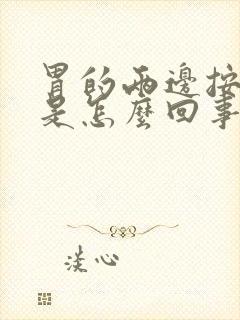 胃的兩邊按
是怎麼回事
淡心